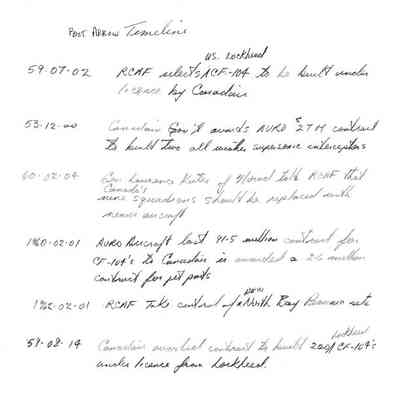 POST ARROW Timeline
U.S. Lockheed
59-07-02 RCAF selects CF-104 to be built under
licence by Canadair
53-12-00 Canadair Gov't awards AVRO $27M contract
to build two all weather supersonic interceptors
60-02-04 Gen Laurence Kuter of Norad tells RCAF that
Canada's
nine squadrons should be replaced with
newer aircraft
1960-02-01 AVRO Aircraft lost 91.5 million contract for
CF-104's to Canadair is awarded a 2.6 million
contract for jet pods
1962-02-01 RCAF Take control of North Bay Bomarc site
59-08-14 Canadair awarded contract to build 200 CF-104's
Lockheed
under licence from Lockheed.